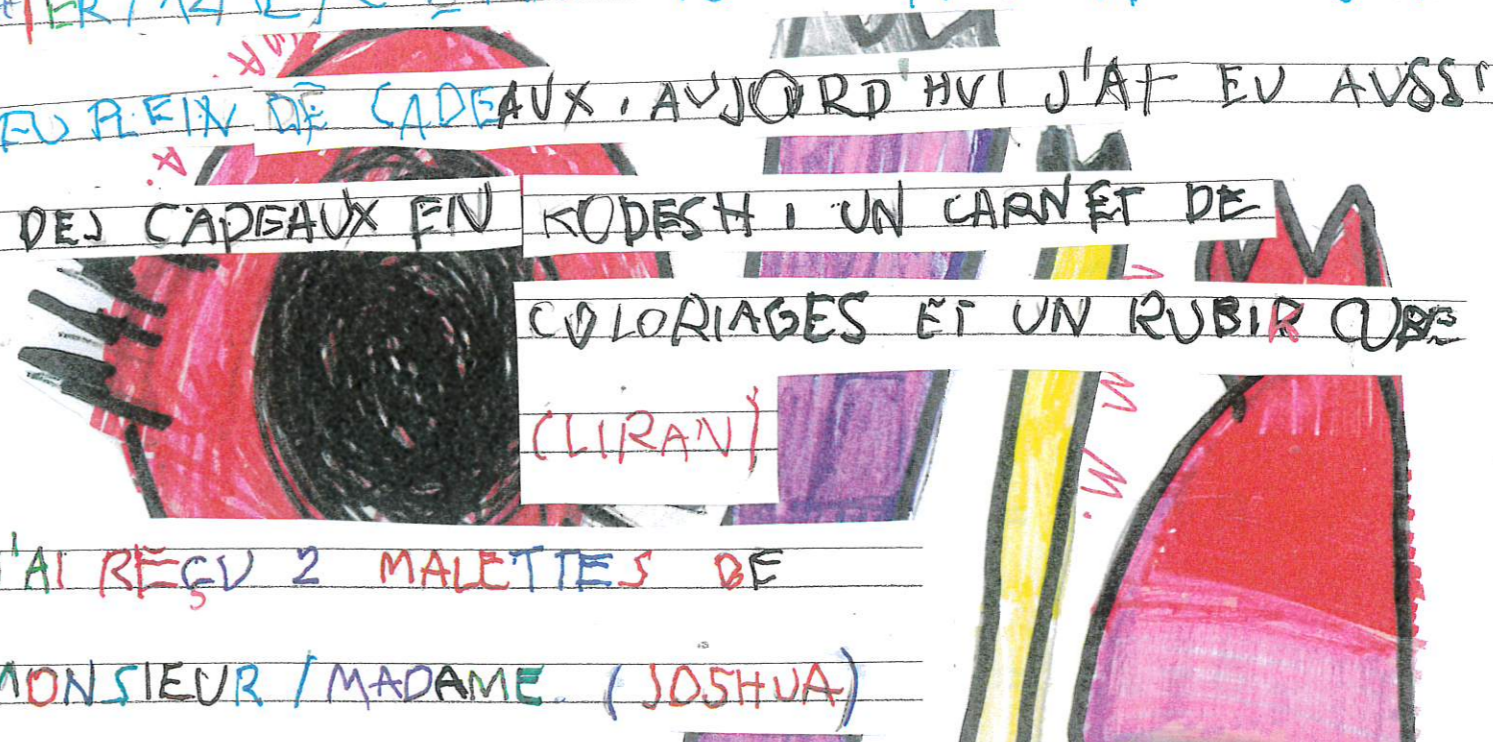 EU PLEIN DE CADEAUX. AUJORD'HUI J'AI EU AUSSI
DES CADEAUX EN KODESH : UN CARNET DE
COLORIAGES ET UN RUBIR CUBE
(LIRAN)
J'AI REÇU 2 MALETTES DE
MONSIEUR / MADAME. (JOSHUA)